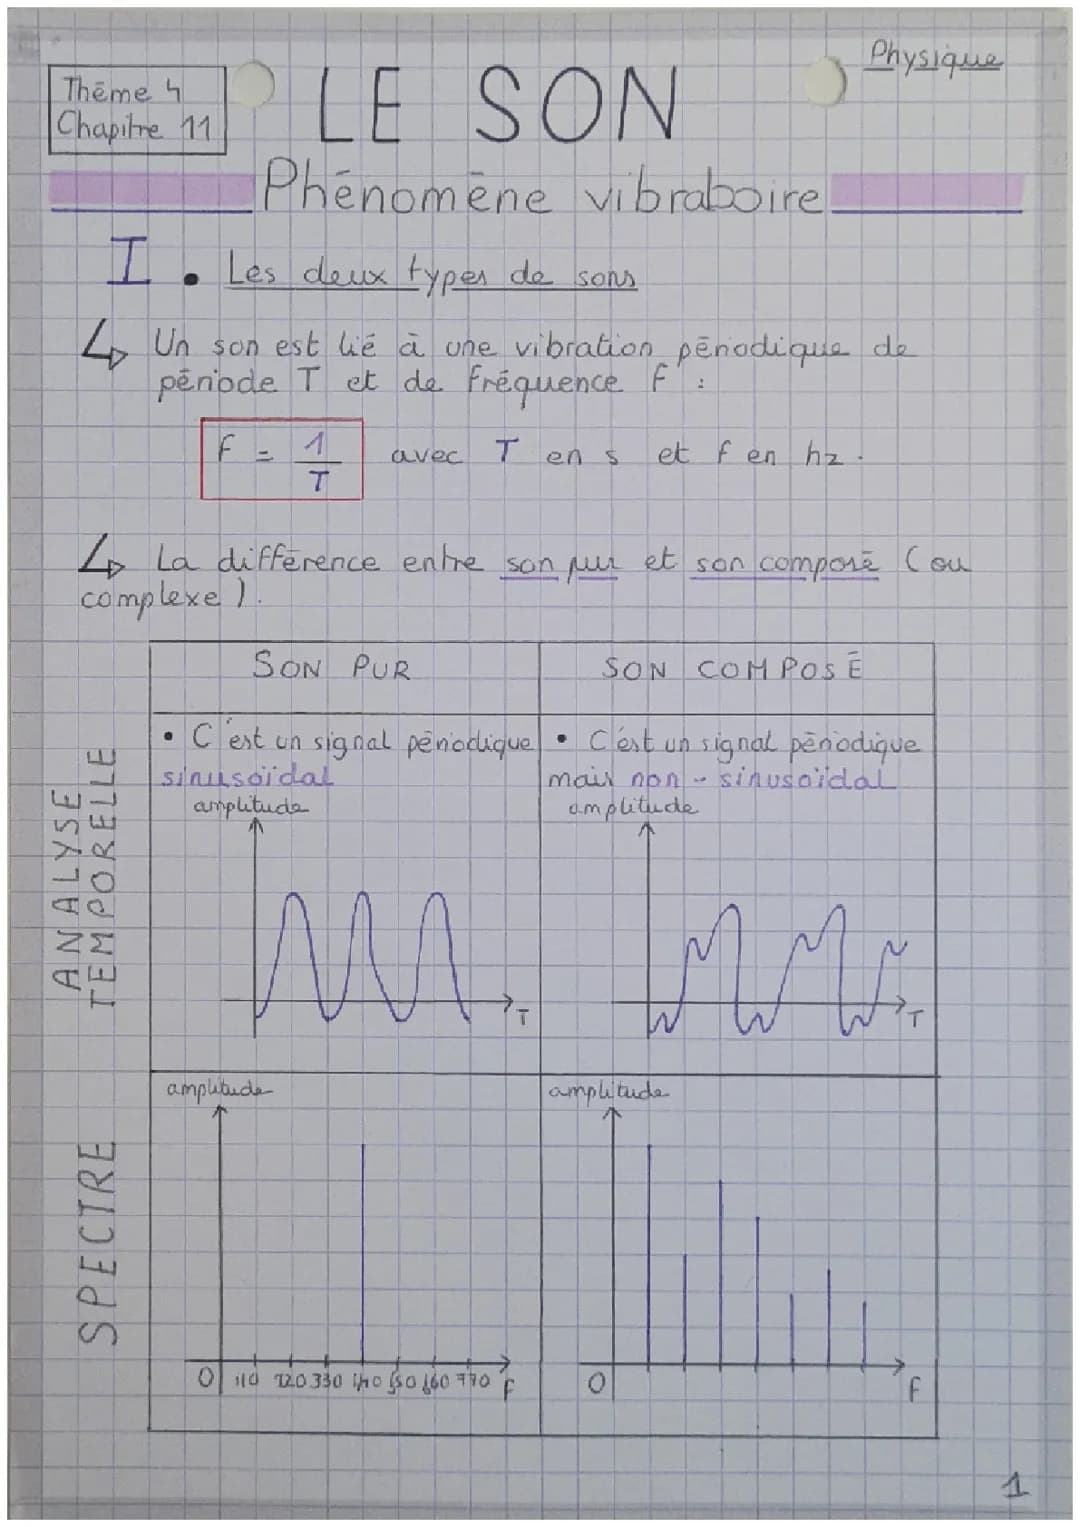 Physique
Thème 4
Chapitre 11
LE SON
Phénomène vibraboire
I. Les deux types de sons
↳ Un son est lié à une vibration périodique de
période T et de fréquence F :
F = 1/T avec T en s et f en hz.
↳ La différence entre son pur et son composé (ou
complexe).
SON PUR
SON COMPOSÉ
• C'est un signal périodique
sinusoïdal
• C'est un signal périodique
mais non-sinusoïdal
ANALYSE
TEMPORELLE
amplitude
T
amplitude
T
SPECTRE
amplitude
0 110 220 330 440 550 660 770 F
amplitude
0 F
1